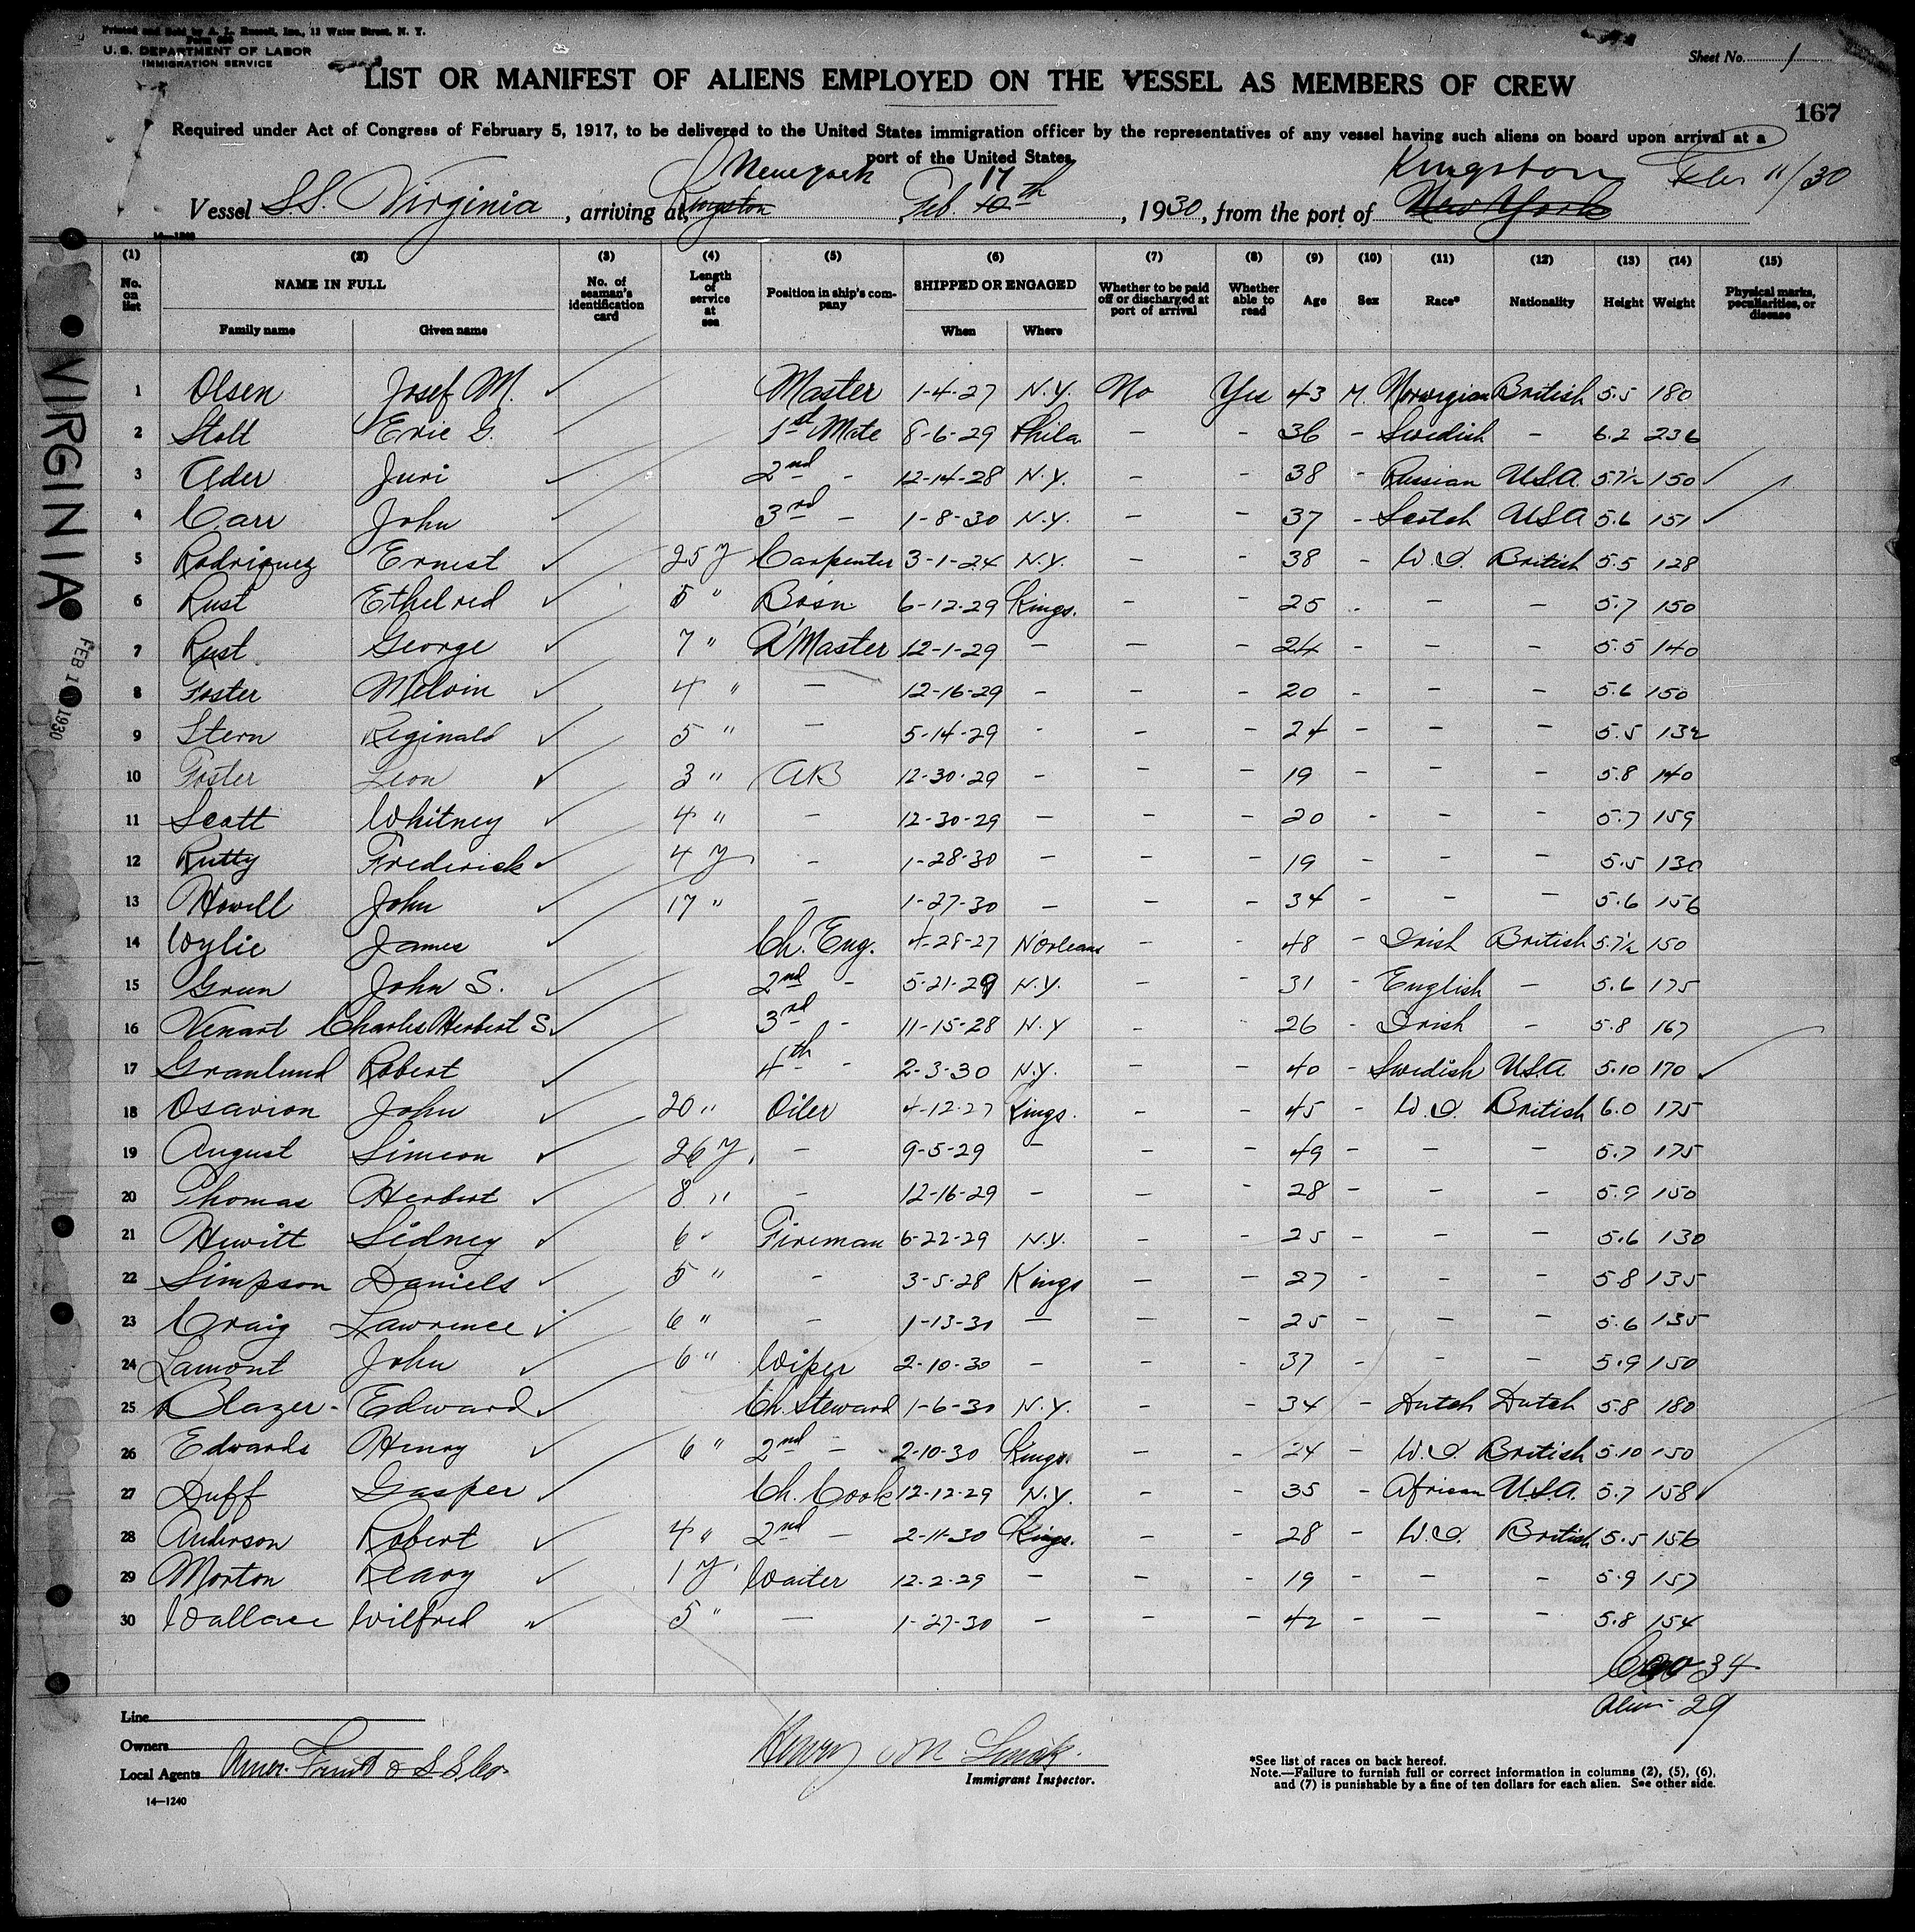 Printed and Sold by A. L. Russell, Inc., 12 Water Street, N. Y.
Form 680
U. S. DEPARTMENT OF LABOR
IMMIGRATION SERVICE
Sheet No. 1
LIST OR MANIFEST OF ALIENS EMPLOYED ON THE VESSEL AS MEMBERS OF CREW
167
Required under Act of Congress of February 5, 1917, to be delivered to the United States immigration officer by the representatives of any vessel having such aliens on board upon arrival at a
port of the United States.
New york 17 Kingston Feb 11/30
Vessel S.S. Virginia, arriving at Kingston, Feb. 10th, 1930, from the port of New York
(1) (2) (3) (4) (5) (6) (7) (8) (9) (10) (11) (12) (13) (14) (15)
No. on list NAME IN FULL Family name Given name No. of seaman's identification card Length of service at sea Position in ship's company SHIPPED OR ENGAGED When Where Whether to be paid off or discharged at port of arrival Whether able to read Age Sex Race* Nationality Height Weight Physical marks, peculiarities, or disease
1 Olsen Josef M. ✓ Master 1-4-27 N.Y. No Yes 43 M. Norwegian British 5.5 180
2 Stoll Eric G. 1st Mate 8-6-29 Phila - - 36 - Swedish - 6.2 236
3 Ader Juri ✓ 2nd - 12-14-28 N.Y. - - 38 - Russian USA. 5.7½ 150 ✓
4 Carr John ✓ 3rd - 1-8-30 N.Y. - - 37 - Scotch USA 5.6 151 ✓
5 Rodriquez Ernest ✓ 25 y Carpenter 3-1-24 N.Y. - - 38 - W.I. British 5.5 128
6 Rust Ethelred ✓ 5 " Bosn. 6-12-29 Kings. - - 25 - - - 5.7 150
7 Rust George ✓ 7 " Q'Master 12-1-29 - - - 24 - - - 5.5 140
8 Foster Melvin ✓ 4 " - 12-16-29 - - - 20 - - - 5.6 150
9 Stern Reginald ✓ 5 " - 5-14-29 - - - 24 - - - 5.5 132
10 Foster Leon ✓ 3 " AB 12-30-29 - - - 19 - - - 5.8 140
11 Scott Whitney ✓ 4 " - 12-30-29 - - - 20 - - - 5.7 159
12 Rutty Frederick ✓ 4 y - 1-28-30 - - - 19 - - - 5.5 130
13 Howell John ✓ 17 " - 1-27-30 - - - 34 - - - 5.6 156
14 Wylie James ✓ Ch. Eng. 4-28-27 N'Orleans - - 48 - Irish British 5.7½ 150
15 Green John S. ✓ 2nd - 5-21-29 N.Y. - - 31 - English - 5.6 175
16 Venart Charles Herbert S. ✓ 3rd - 11-15-28 N.Y - - 26 - Irish - 5.8 167
17 Granlund Robert ✓ 4th - 2-3-30 N.Y. - - 40 - Swedish U.S.A. 5.10 170 ✓
18 John ✓ 20 " Oiler 4-12-27 Kings. - - 45 - W.I. British 6.0 175
19 August Simeon ✓ 26 y. - 9-5-29 - - - 49 - - - 5.7 175
20 Thomas Herbert ✓ 8 " - 12-16-29 - - - 28 - - - 5.9 150
21 Hewitt Sidney ✓ 6 " Fireman 6-22-29 N.Y. - - 25 - - - 5.6 130
22 Simpson Daniels ✓ 5 " - 3-5-28 Kings - - 27 - - - 5.8 135
23 Craig Lawrence ✓ 6 " - 1-13-30 - - - 25 - - - 5.6 135
24 Lamont John ✓ 6 " Wiper 2-10-30 - - - 37 - - - 5.9 150
25 Blazer - Edward ✓ Ch. Steward 1-6-30 N.Y. - - 34 - Dutch Dutch 5.8 180
26 Edwards Henry ✓ 6 " 2nd - 2-10-30 Kings. - - 24 - W.I. British 5.10 150
27 Duff Gasper ✓ Ch. Cook 12-12-29 N.Y. - - 35 - African U.S.A. 5.7 158 ✓
28 Anderson Robert ✓ 4 " 2nd - 2-11-30 Kings. - - 28 - W.I. British 5.5 156
29 Morton ✓ 1 y. Waiter 12-2-29 - - - 19 - - - 5.9 157
30 Wallace Wilfred ✓ 5 " - 1-27-30 - - - 42 - - - 5.8 154
34
Alien - 29
Line
Owners
Local Agents Amer. Fruit & S S Co.
Henry
Immigrant Inspector.
*See list of races on back hereof.
Note.—Failure to furnish full or correct information in columns (2), (5), (6),
and (7) is punishable by a fine of ten dollars for each alien. See other side.
14—1240
VIRGINIA
FEB 1 1930